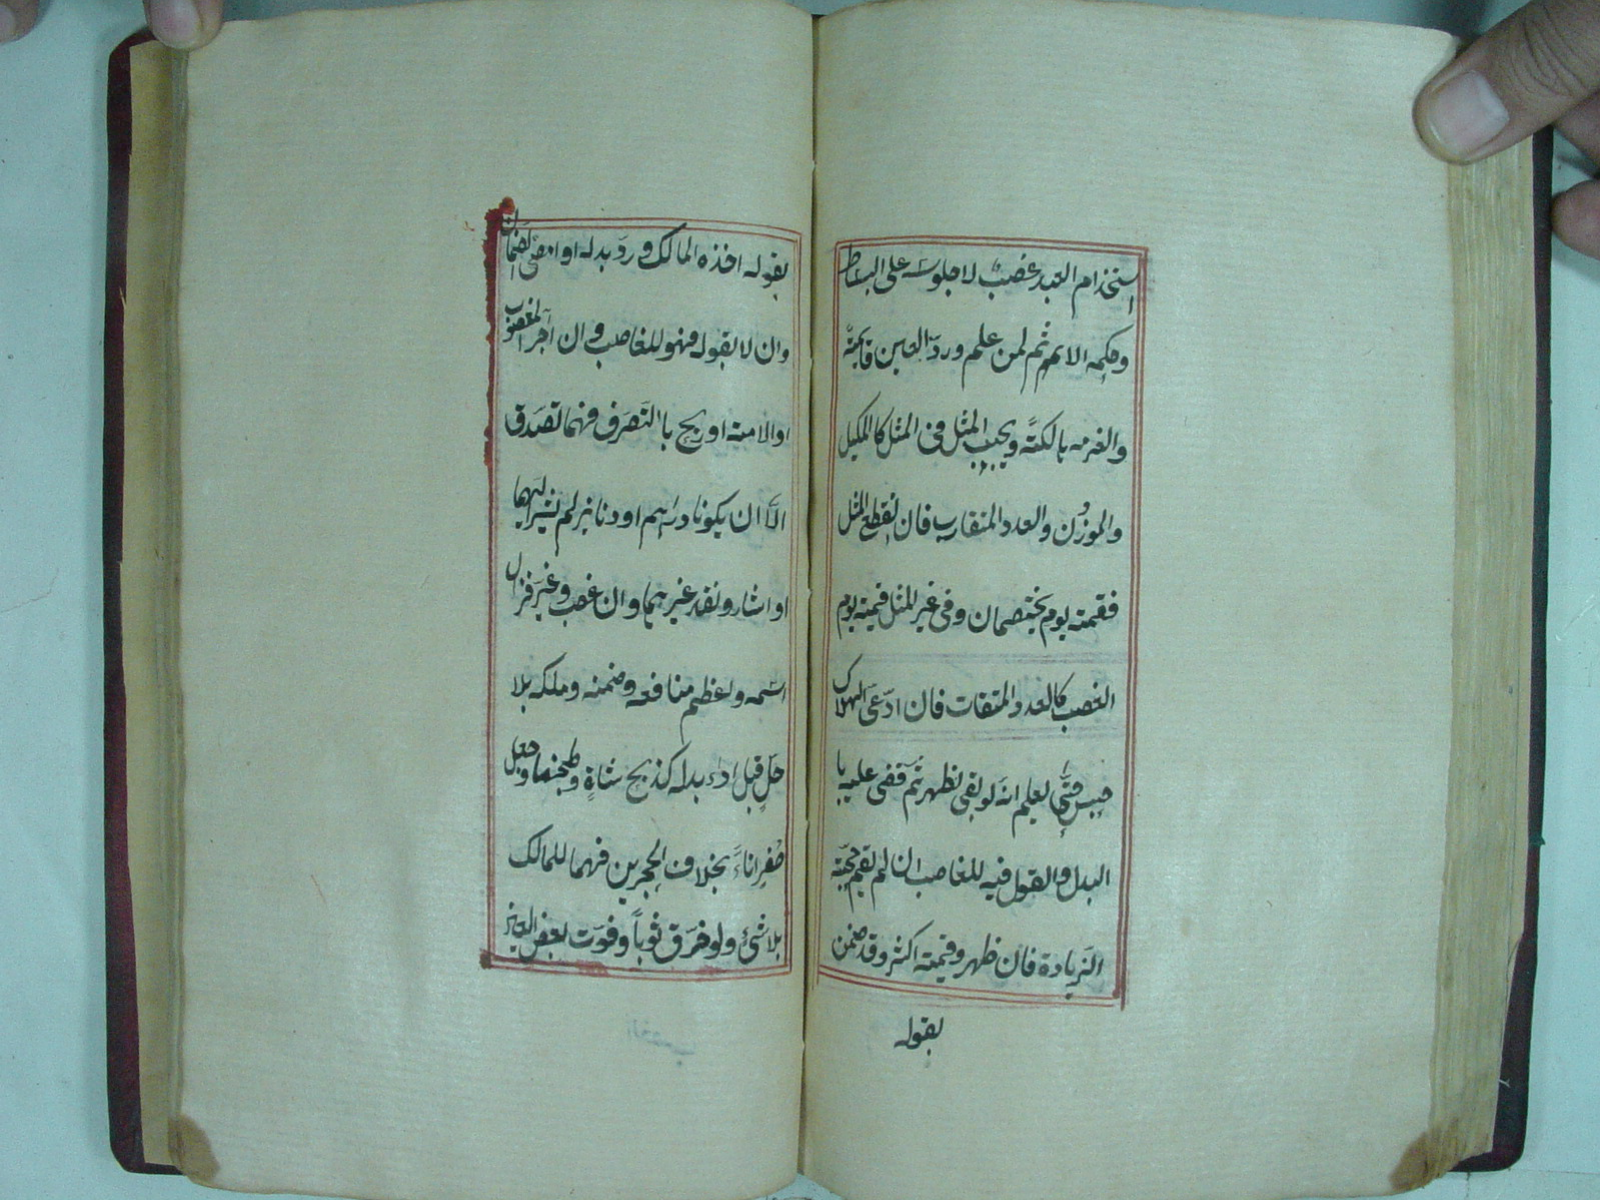 استخدام العبد غصب لا جلوسه على البساط
وحكمه الاثم ثم لمن علم ورد العين قايمة
والغرمه بالكتة ويجب المثل فى المثل كالمكيل
والموزن والعدد المتقارب فان انقطع المثل
فقيمته يوم يختصمان وفى غير المثل قيمته يوم
الغصب كالعدد المتفات فان ادعى الهلاك
حبس حتى يعلم انه لو بقى لظهر ثم قضى عليه با
البدل والقول فيه للغاصب ان لم يقم حجة
الزيادة فان ظهر وقيمته اكثر وقد ضمن
بقوله
بقوله اخذه المالك ورد بدله او امضى الضمان
وان لا بقوله فهو للغاصب وان آجر المغصوب
او الامنة او ربح با التصرف فيهما تصدق
الا ان يكونا دراهم او دنانير لم يشر اليها
او اشار ونقد غيرهما وان غصب وغير فزال
اسمه واعظم منافعه وضمنه وملكه بلا
حل قبل اداء بدله كذبح شاة وطبخها وجعل
صفر اناءً بخلاف الحجرين فهما للمالك
بلا شئ ولو خرق ثوباً وفوت بعض العين